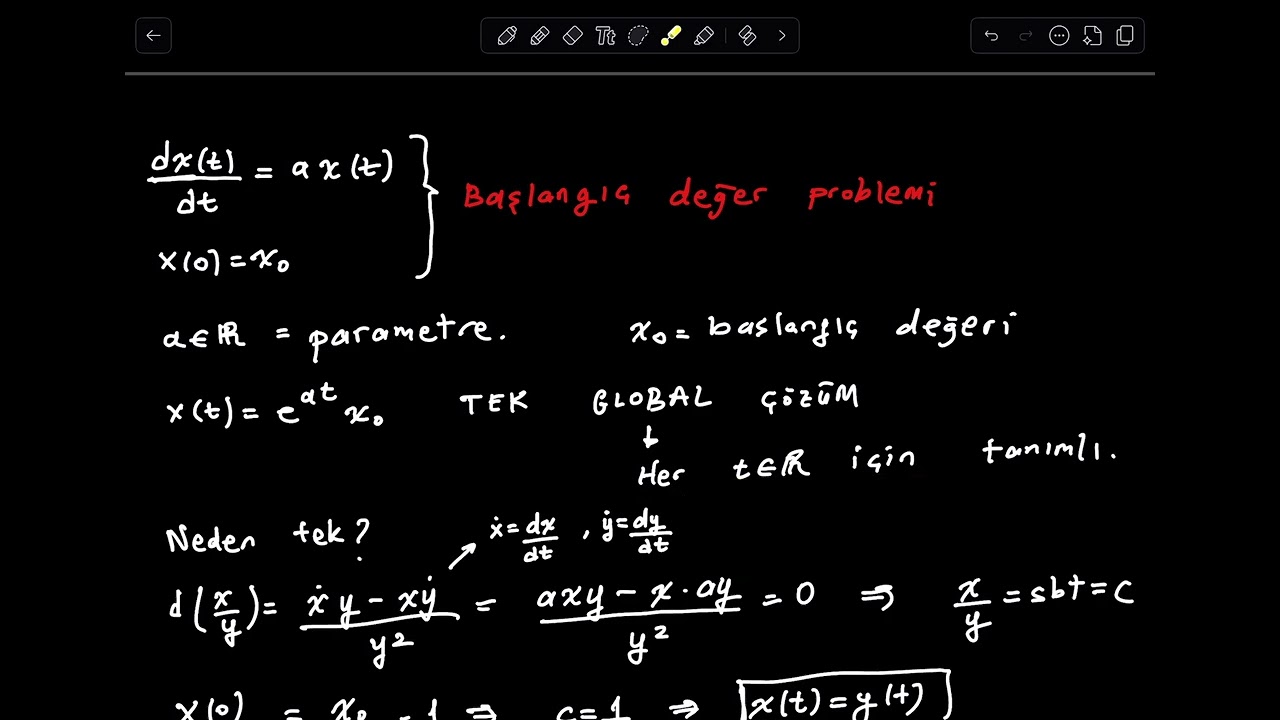 Tt
dx(t)/dt = a x(t)
Başlangıç değer problemi
x(0) = x₀
a∈ℝ = parametre. x₀ = başlangıç değeri
x(t) = e^{at} x₀ TEK GLOBAL ÇÖZÜM
↓
Her t∈ℝ için tanımlı.
Neden tek? ẋ = dx/dt , ẏ = dy/dt
d(x/y) = (ẋy − xẏ)/y² = (axy − x·ay)/y² = 0 ⇒ x/y = sbt = c
x(0) = x₀ = 1 ⇒ c=1 ⇒ x(t) = y(t)